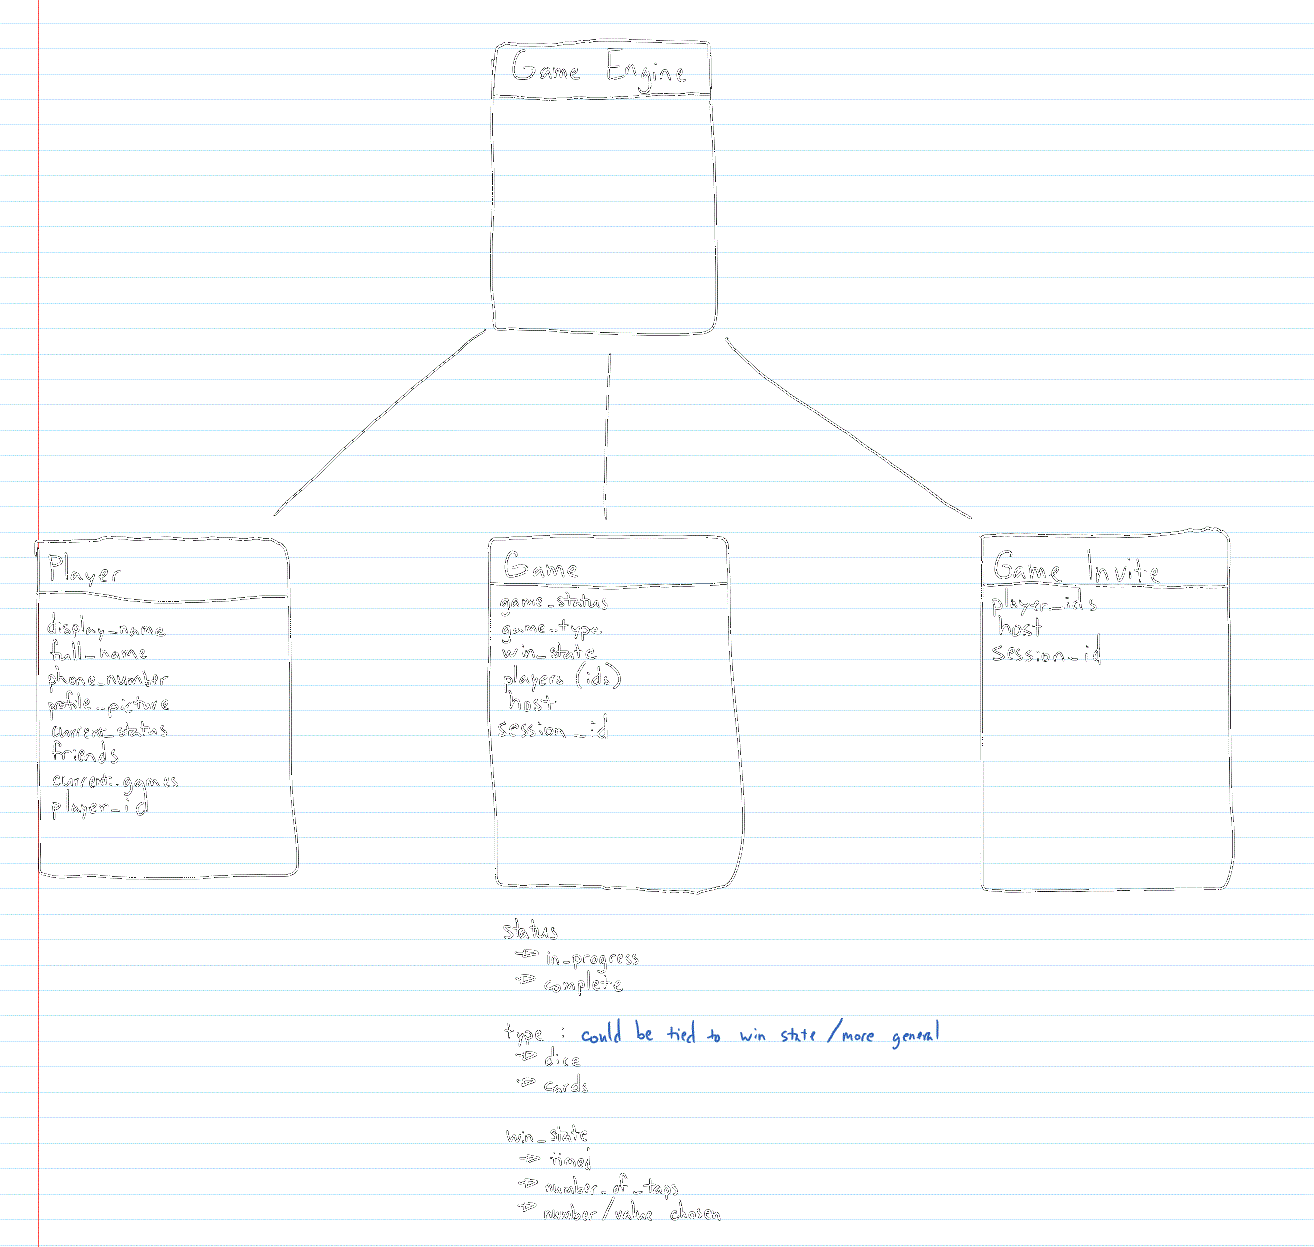 Game Engine
Player
display_name
full_name
phone_number
pofile_picture
current_status
friends
current_games
player_id
Game
game_status
game_type
win_state
players (ids)
host
session_id
Game Invite
player_ids
host
session_id
status
→ in_progress
→ complete
type : could be tied to win state / more general
→ dice
→ cards
win_state
→ timed
→ number_of_taps
→ number/value chosen